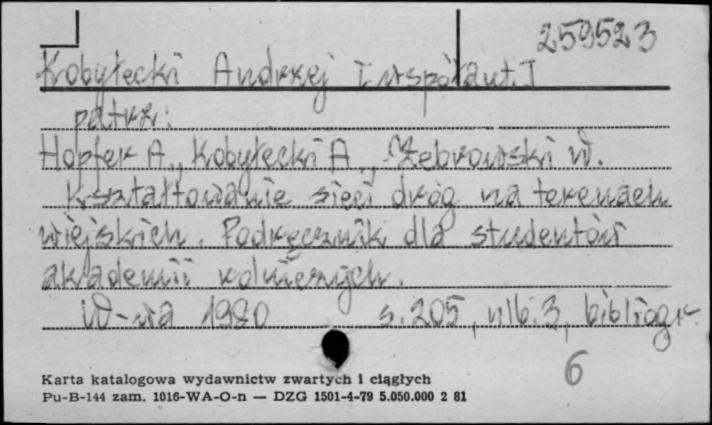 259523
Kobyłecki Andrzej [współaut.]
patrz:
Hopfer A., Kobyłecki A., Żebrowski W.
Kształtowanie sieci dróg na terenach
wiejskich. Podręcznik dla studentów
akademii rolniczych.
W-wa 1980 s. 205, nlb. 3, bibliogr.
6
Karta katalogowa wydawnictw zwartych i ciągłych
Pu-B-144 zam. 1016-WA-O-n — DZG 1501-4-79 5.050.000 2 81